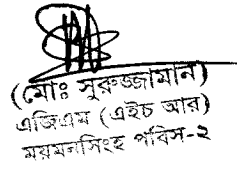 (মোঃ সুরুজ্জামান)
এজিএম (এইচ আর)
ময়মনসিংহ পবিস-২